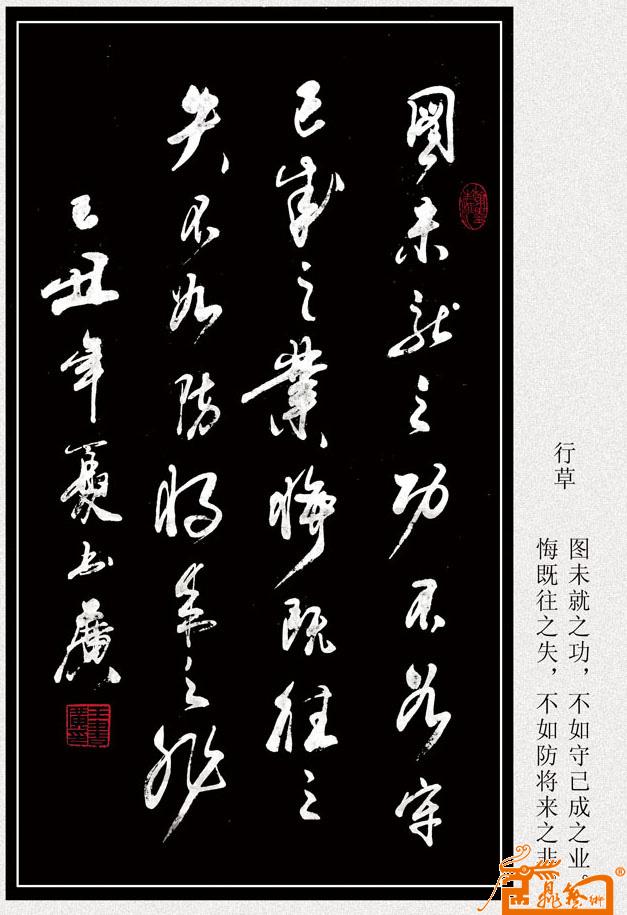 圖未就之功不如守
已成之業悔既往之
失不如防將來之非
己丑年夏書廣
王書廣印
行草
图未就之功，不如守已成之业。
悔既往之失，不如防将来之非